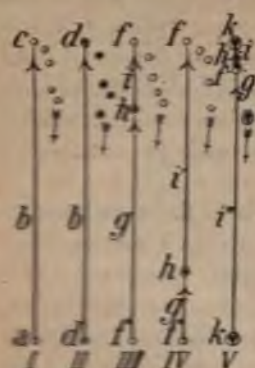 c d f f k
i h i
h f g
b b g i i
h
g
a d f f k
I II III IV V